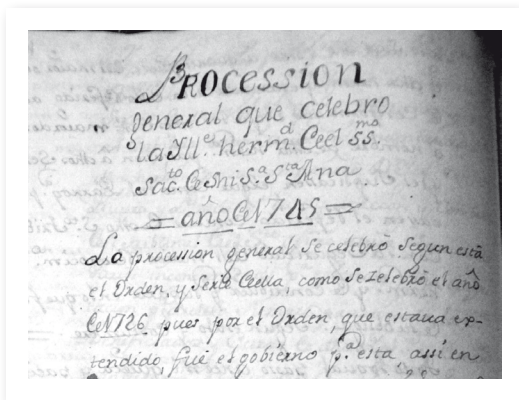 Procession
general que celebro
la Ill.e herm.d Ceel ss.mo
sac.to Ce Sni S.a S.ta Ana
= año Ce 1745 =
La procession general se celebró segun està
el Orden, y serie Cella, como se zelebrò el año
Ce 1726, pues por el Orden, que estaua ex-
tendido, fuè el gobierno p.a esta assi en